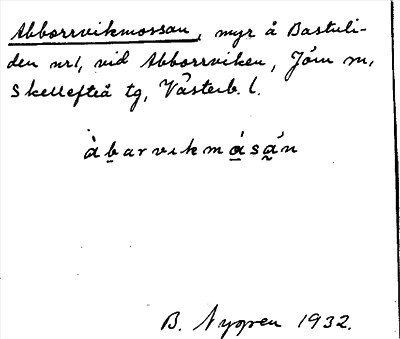 Abborrvikmossan, myr å Bastuli-
den nr 1, vid Abborrviken, Jörn sn,
Skellefteå tg, Västerb. l.
àb̲arvikmá̲sã̲́n
B. Nygren 1932.